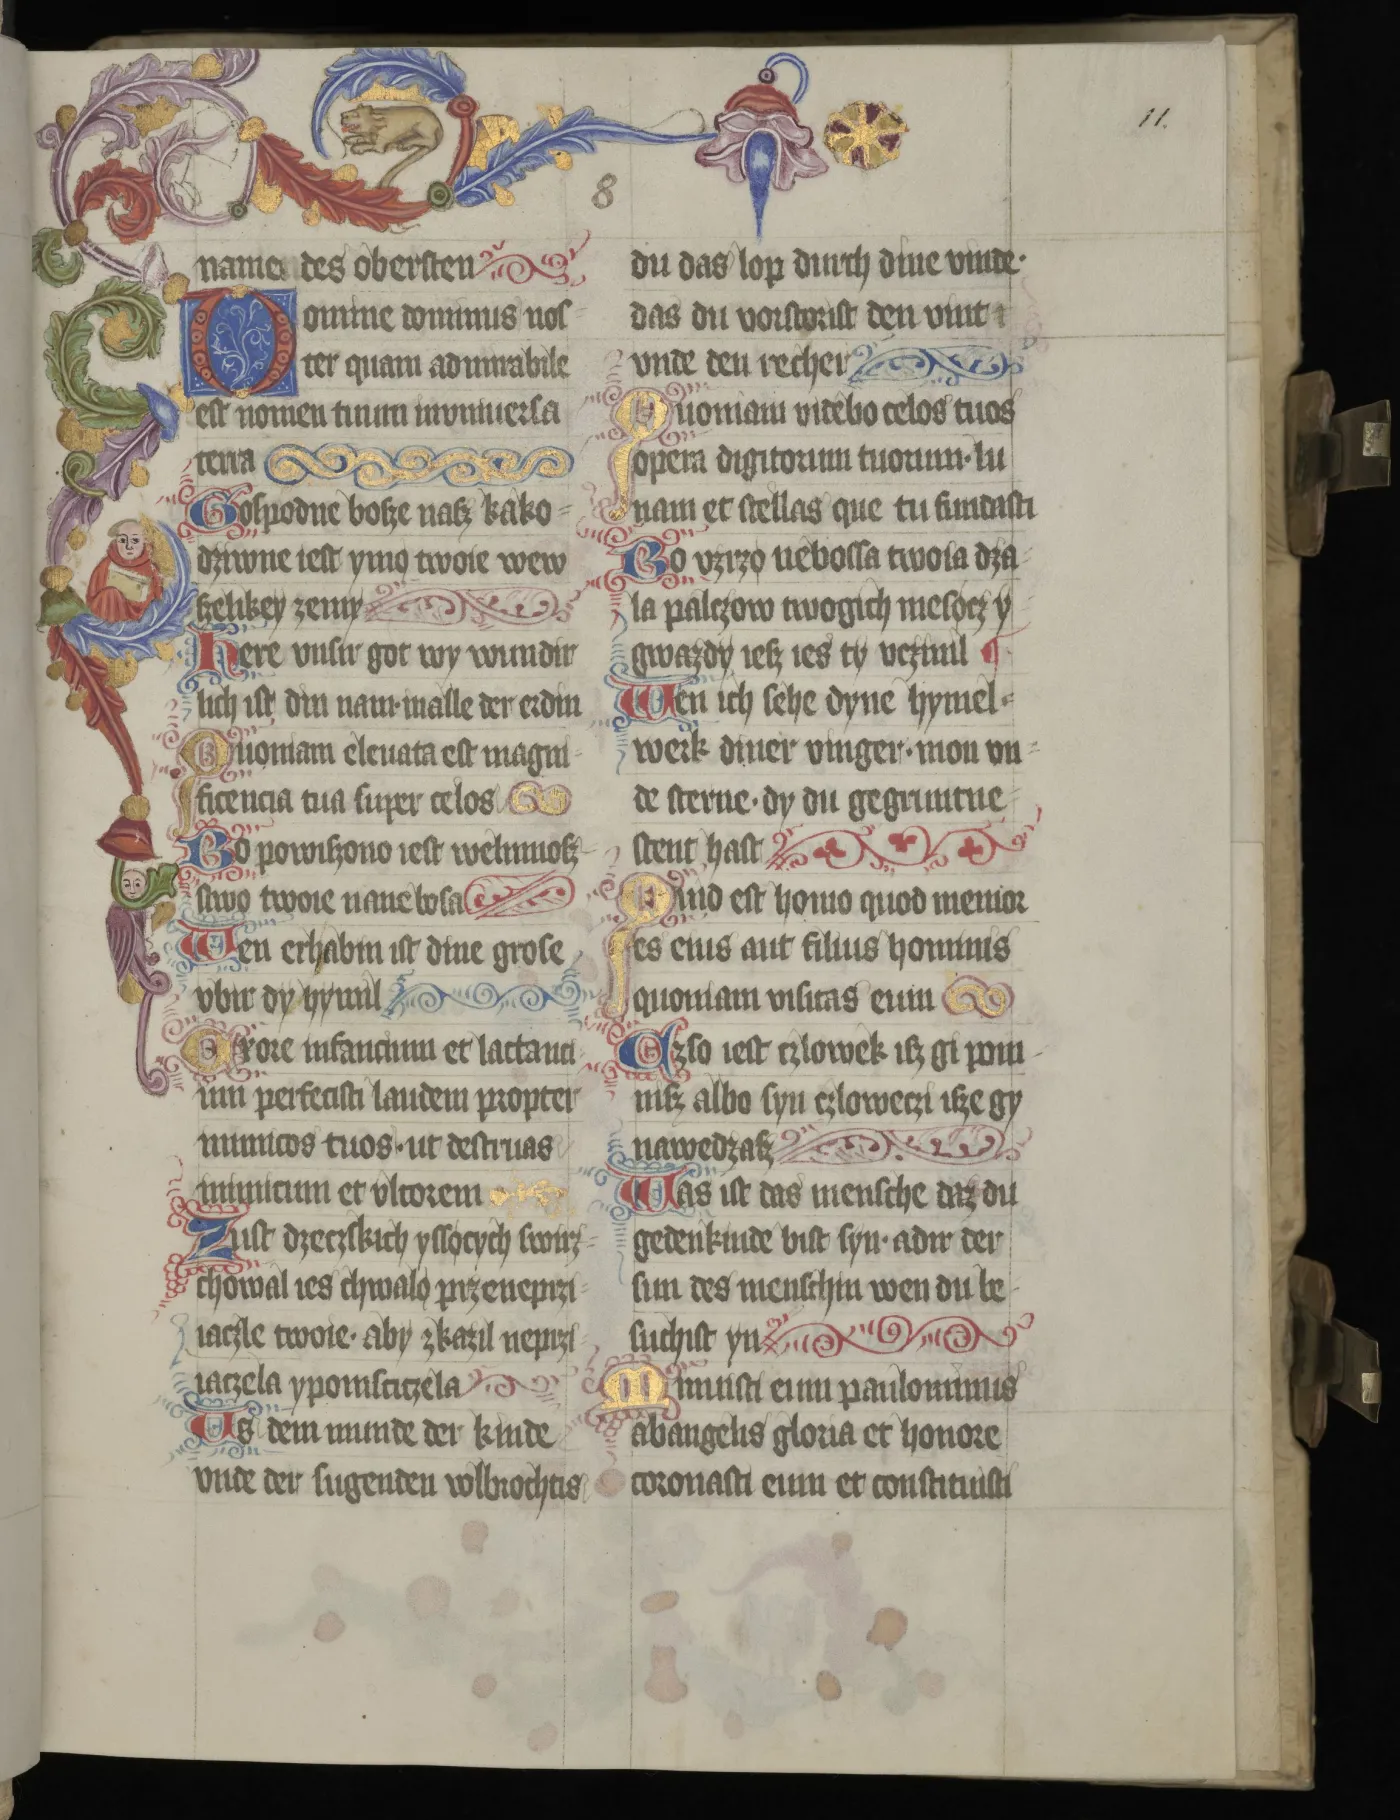 11.
8
name des obersten
Domine dominus nos
ter quam admirabile
est nomen tuum in vniuersa
terra
Gospodne bosze nasz kako
dziwne iest ymø twoie wew
szelikey zemy
Here vnsir got wy wundir
lich ist din nam in alle der erdin
Quoniam eleuata est magni
ficencia tua super celos
Bo powiszono iest welmnosz
stwo twoie na nebosa
Wen erhabin ist dine grose
vbir dy hymil
Ex ore infancium et lactanci
um perfecisti laudem propter
inimicos tuos · ut destruas
inimicum et vltorem
Zust dzeczskich y ssøcych swirz
chowal ies chwalø prze neprzi
iaczle twoie · aby zkazil neprzi
iaczela y pomsciczela
Us dem munde der kinde
vnde der sugenden volbrochtis
du das lop durch dine vinde ·
das du vorstorist den vint
vnde den recher
Quoniam videbo celos tuos
opera digitorum tuorum · lu
nam et stellas que tu fundasti
Bo vzrzø nebossa twoia dza
la palczow twogich mesøcz y
gwazdy iesz ies ty vczinil
Wen ich sehe dyne hymel
werk diner vinger · mon vn
de sterne · dy du gegruntue
stent hast
Quid est homo quod memor
es eius aut filius hominis
quoniam visitas eum
Czso iest czlowek isz gi pom
nisz albo syn czloweczi isze gy
nawedzasz
Was ist das mensche daz du
gedenkinde bist syn · adir der
sun des menschin wen du be
suchist yn
Minuisti eum paulominus
ab angelis gloria et honore
coronasti eum et constituisti